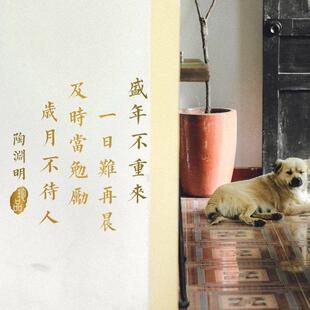 盛年不重來
一日難再晨
及時當勉勵
歲月不待人
陶淵明